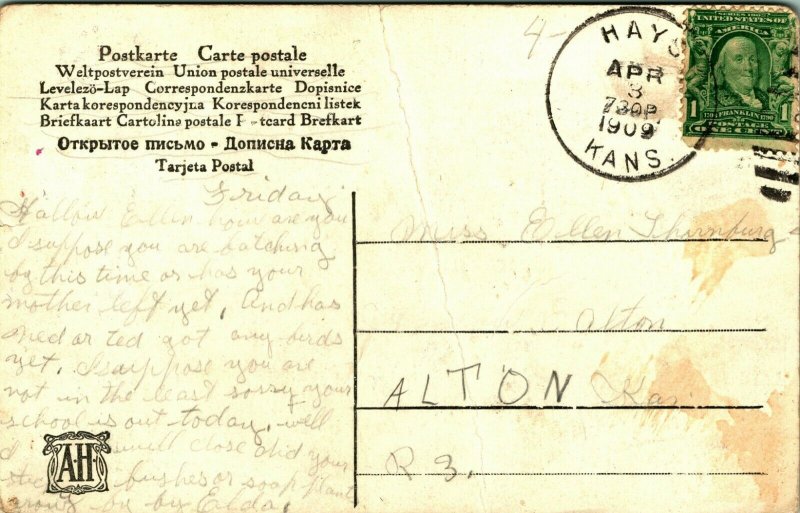 Postkarte Carte postale
Weltpostverein Union postale universelle
Levelezö-Lap Correspondenzkarte Dopisnice
Karta korespondencyjna Korespondencni listek
Briefkaart Cartolina postale Postcard Brefkart
Открытое письмо - Дописна Карта
Tarjeta Postal
HAY
APR
3
730P
1909
KANS.
SERIES 1902
UNITED STATES OF
AMERICA
1 FRANKLIN 1
POSTAGE
ONE CENT
Friday
Hallow Ellen how are you
I suppose you are batching
by this time or has your
mother left yet, And has
Ned or Ted got any birds
yet. I suppose you are
not in the least sorry your
school is out today. well
I will close did your
bushes or soap plant
grow by by Elda.
AH
Miss Ellen Thurnburg
Alton
ALTON Kas
R 3.